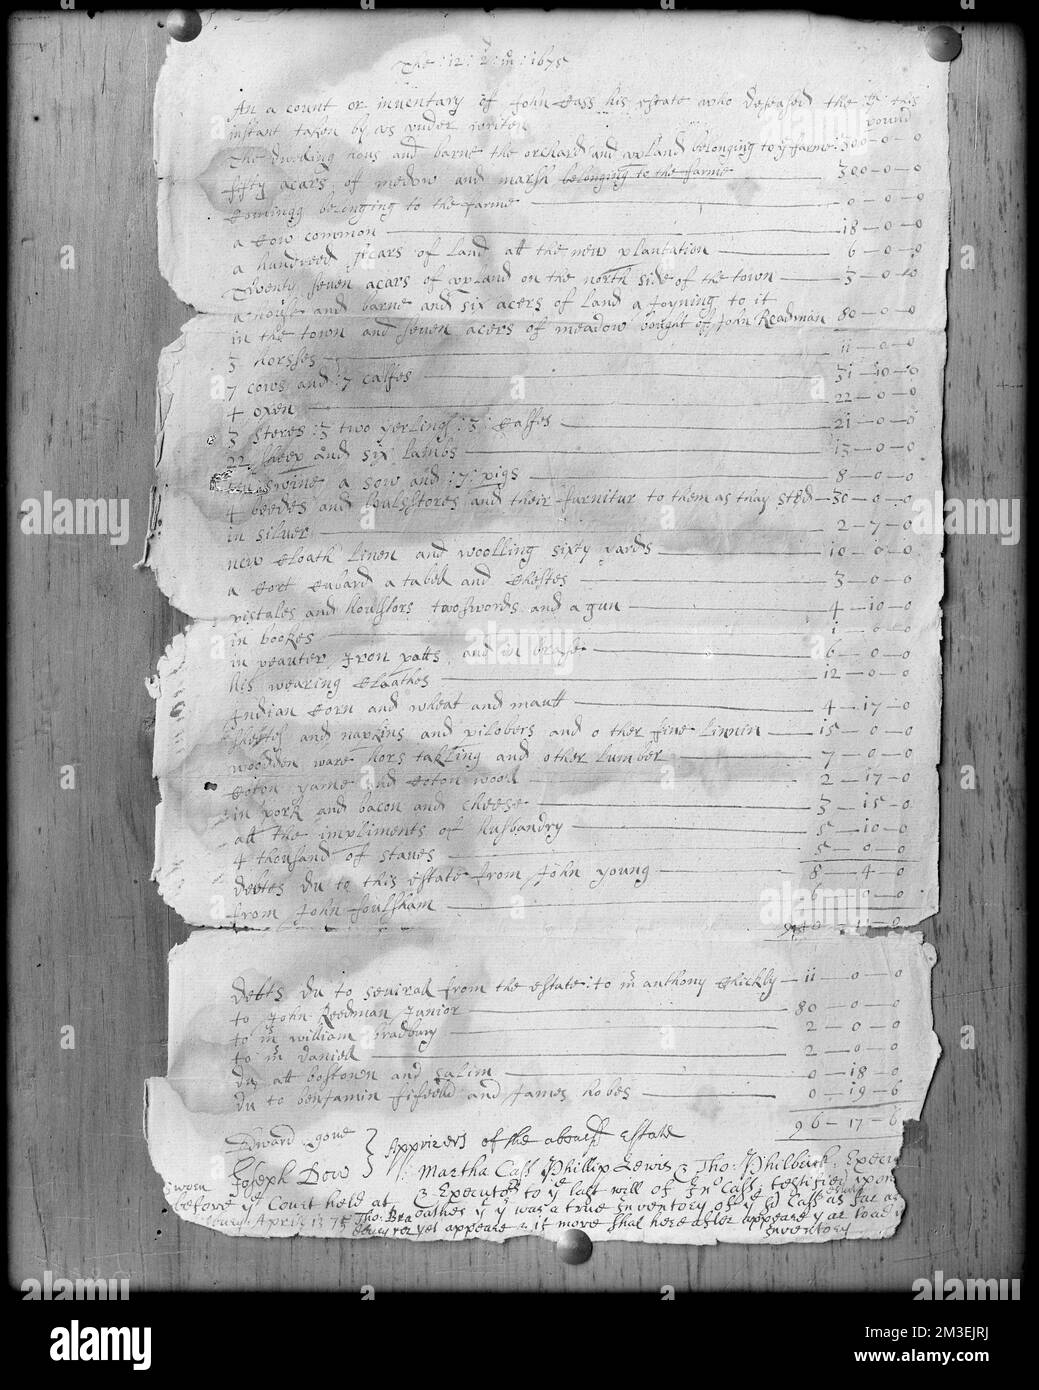 The : 12 : 2 : m : 1675
An a count or inventary of John Cass his estate who deseased the this
instant taken by us under writen
pound
The dwelling hous and barne the orchard and upland belonging to ye farme : 300-0-0
fifty acars of medow and marsh belonging to the farme 300-0-0
belonging to the farme 0-0-0
a Cow common 18-0-0
a hundred Acars of Land att the new plantation 6-0-0
Twenty seven acars of upland on the north side of the town 3-0-0
a house and barne and six acers of Land a Joyning to it
in the town and seven acers of meadow bought of John Readman 80-0-0
3 horsses 11-0-0
7 cows and :7 calfes 31-10-0
4 oxen 22-0-0
3 steres :3 two yerlings :3: Calfes 21-0-0
22 sheep and six Lambs 13-0-0
swine a sow and :7: pigs 8-0-0
4 beedes and and their furnitur to them as thay sted 30-0-0
in silver 2-7-0
new Cloath Linen and woolling sixty yards 10-0-0
a Cort Cubard a tabell and Chestes 3-0-0
pistales and houlstors two swords and a gun 4-10-0
in bookes 1-0-0
in peauter Iron potts and in brasse 6-0-0
his wearing Cloathes 12-0-0
Indian Corn and wheat and mault 4-17-0
sheetes and napkins and pilobers and other fine Linnin 15-0-0
woodden ware hors takling and other lumber 7-0-0
Coton yarne and Coton wooll 2-17-0
in pork and bacon and cheese 3-15-0
all the impliments of husbandry 5-10-0
4 thousand of staves 5-0-0
debtes du to this estate from John young 8-4-0
from John foulsham 6-0-0
11-0
debts du to severall from the estate : to mr anthony Chickly 11-0-0
to John Reedman Junior 80-0-0
to mr william bradbury 2-0-0
to mr daniell 2-0-0
du att bostown and salim 0-18-0
du to benjamin fifeeld and James hobes 0-19-6
96-17-6
Edward gove
Joseph Dow
Apprizers of the abovesd Estate
Martha Cass Phillip Lewis & Tho: Philbrick Execu
sworn
before ye Court held at
April 13 75 Tho: Bra
& Executors to ye last will of Jno Cass, testified upon
oathes yt ys was a true Inventory of ye sd Cass as far as
yet appeare & if more shal hereafter appeare
Inventory
alamy
Image ID: 2M3EJRJ
www.alamy.com